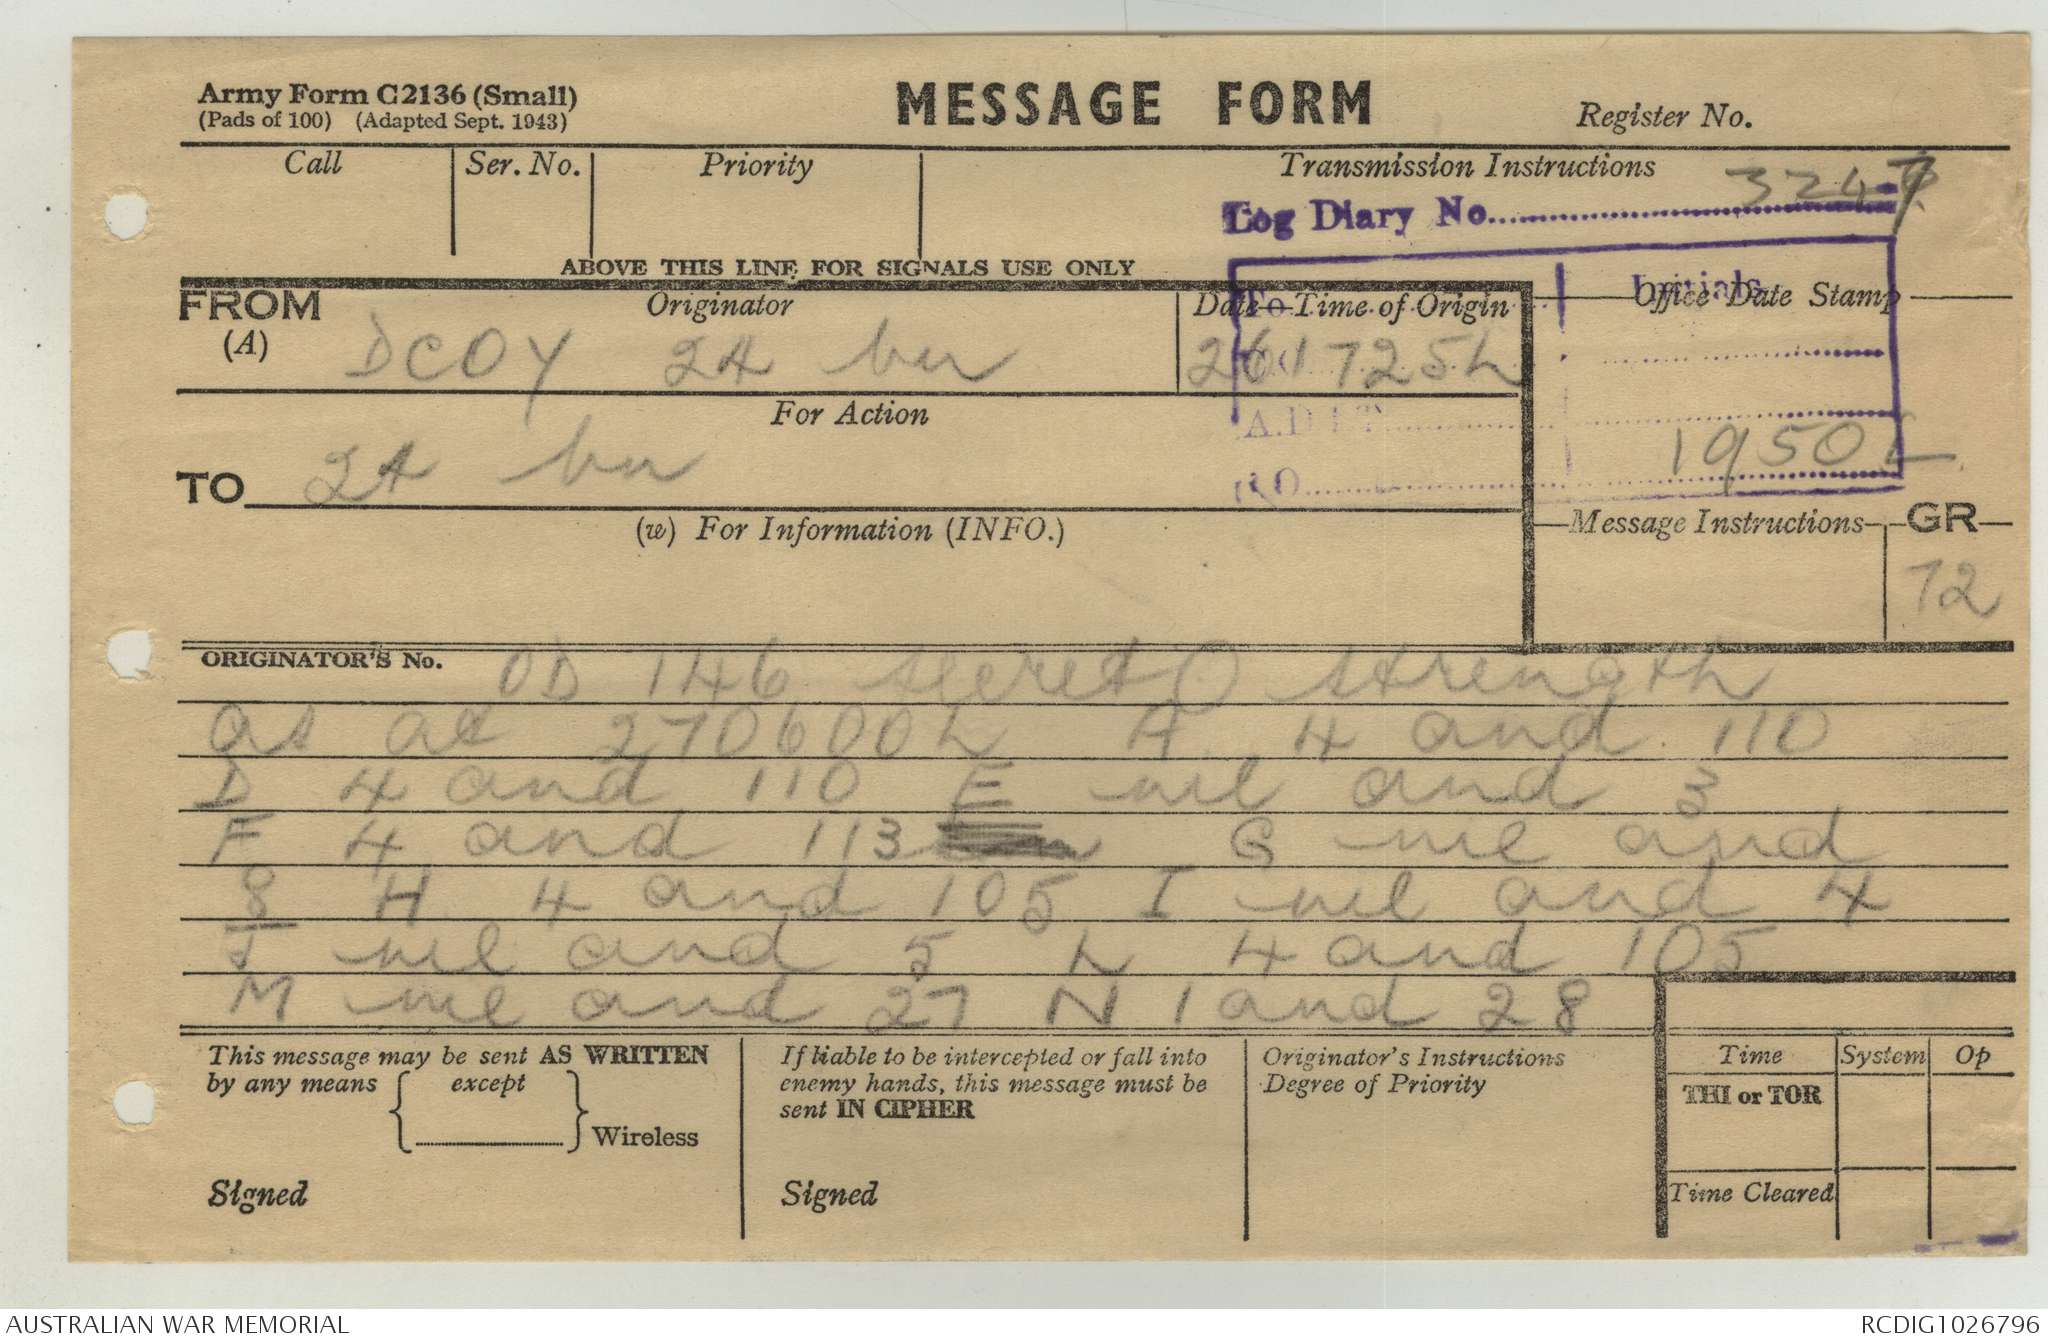 Army Form C2136 (Small)
(Pads of 100) (Adapted Sept. 1943)
MESSAGE FORM
Register No.
Call
Ser. No.
Priority
Transmission Instructions
3247
Log Diary No.
ABOVE THIS LINE FOR SIGNALS USE ONLY
FROM
(A)
Originator
DCOY 24 bn
Date—Time of Origin
261725L
Office Date Stamp
Initials
For Action
TO
24 bn
1950L
(w) For Information (INFO.)
Message Instructions
GR
72
ORIGINATOR'S No.
OD 146 secret O strength
as at 270600L A 4 and 110
D 4 and 110 E nil and 3
F 4 and 113 G nil and
8 H 4 and 105 I nil and 4
J nil and 5 L 4 and 105
M nil and 27 N 1 and 28
This message may be sent AS WRITTEN
by any means { except } Wireless
Signed
If liable to be intercepted or fall into
enemy hands, this message must be
sent IN CIPHER
Signed
Originator's Instructions
Degree of Priority
Time
System
Op
THI or TOR
Time Cleared
AUSTRALIAN WAR MEMORIAL
RCDIG1026796